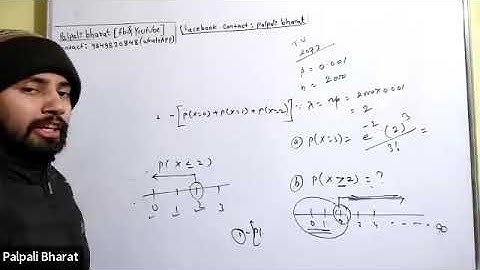 Palpali bharat [fb & Youtube]
contact: 9849820848 (whatsApp)
Facebook contact: palpali bharat
T.U
2077
p = 0.001
n = 2000
1 - [p(x=0) + p(x=1) + p(x=2)]
λ = np = 2000×0.001
= 2
(a) p(x=3) = e^-2 (2)^3 / 3! =
p(x ≤ 2)
0 1 2 3
(b) p(x ≥ 2) = ?
0 1 2 3 4 ∞
1 - [p(
Palpali Bharat